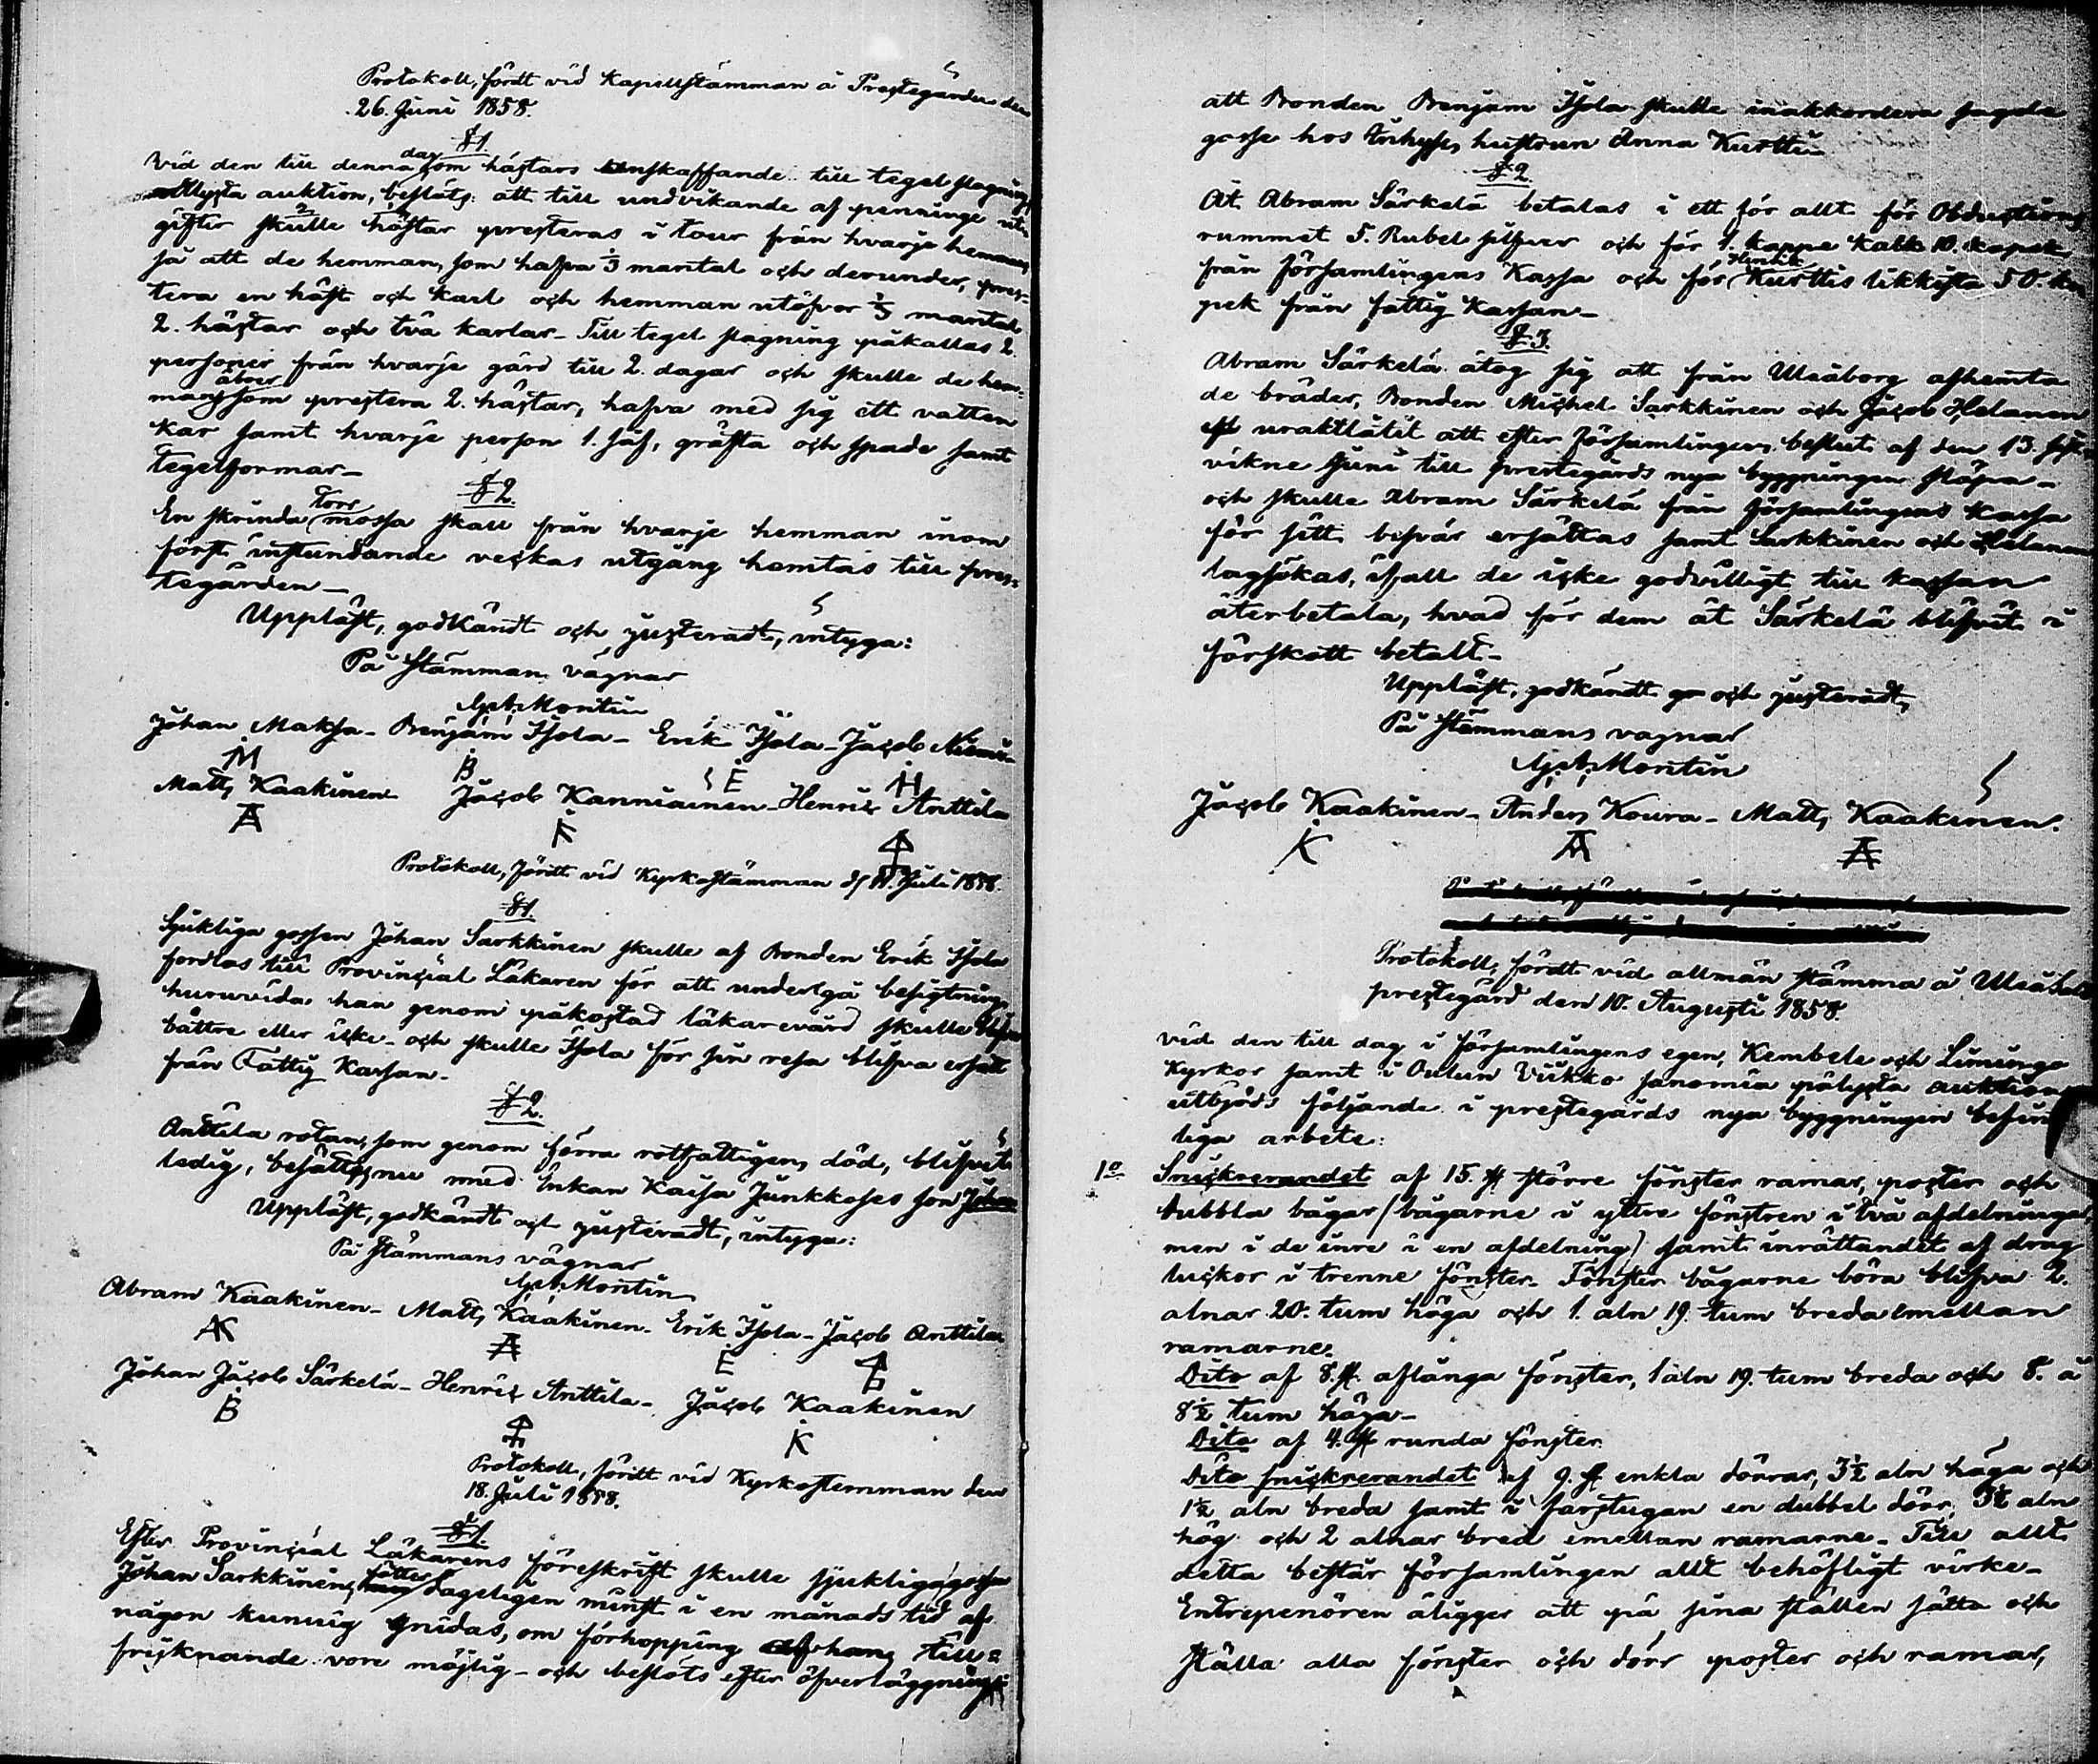 Protokoll, fördt vid Kapellstämman å Prestegården den
26. Juni 1858.
§1.
Vid den till denna dag om hästars anskaffande till tegelslagning
utlysta auktion, beslöts: att till undvikande af penninge ut-
gifter skulle 2 hästar presteras i tour från hvarje hemman,
så att de hemman, som hafva 1/3 mantal och derunder, pres-
tera en häst och karl och hemman utöfver 1/3 mantal
2. hästar och två karlar_ Till tegel slagning påkallas 2.
personer från hvarje gård till 2. dagar och skulle de hem-
mans åboer som prestera 2. hästar, hafva med sig ett vatten
kar samt hvarje person 1. såf, gräfta och spade samt
tegelformar_
§2.
En skrinda torr mossa skall från hvarje hemman inom
först instundande veckas utgång hemtas till pres-
tegården_
Uppläst, godkändt och justeradt, intyga:
På Stämmans vägnar
G.A. Montin
Johan Maksa_ Benjam Isola_ Erik Isola_ Jacob Niemi_
M B E H
Matts Kaakinen Jacob Kanniainen_ Henric Anttila
A K
Protokoll, fördt vid Kyrkostämman d. 11. Juli 1858.
§1.
Sjukliga gossen Johan Sarkkinen skulle af Bonden Erik Isola
fordlas till Provincial Läkaren för att undergå besigtning,
huruvida han genom påkostad läkarevård skulle blifva
bättre eller icke_ och skulle Isola för sin resa blifva ersatt
från Fattig Kassan_
§2.
Anttila rotan, som genom förra rotfattigens död, blifvit
ledig, besattes nu med Enkan Kaisa Junkkoses son Johan
Uppläst, godkändt och justeradt, intyga:
På Stämmans vägnar
G.A. Montin
Abram Kaakinen_ Matts Kaakinen_ Erik Isola_ Jacob Anttila
AK A E
Johan Jacob Särkelä_ Henric Anttila_ Jacob Kaakinen
B K
Protokoll, fördt vid Kyrkostemman den
18. Juli 1858.
§1.
Efter Provincial Läkarens föreskrift skulle sjukliga gossen
Johan Sarkkinens fötter dageligen minst i en månads tid af
någon kunnig gnidas, om förhopping af hans till-
frisknande vore möjlig_ och beslöts efter öfverläggning,
att Bonden Benjam Isola skulle inakkordera sagde
gosse hos Inhyses hustrun Anna Kurtti_
§2.
Åt Abram Särkelä betalas i ett för allt för Obductions
rummet 5. Rubel silfver och för 1. kappe kalk 10. kopek
från församlingens Kassa och för Henrik Kurttis likkista 50. ko
pek från fattig Kassan_
§3.
Abram Särkelä åtog sig att från Uleåborg afhemta
de bräder, Bonden Michel Sarkkinen och Jacob Helanen
uraktlåtit att efter församlingens beslut af den 13. sist-
vikne Juni till prestegårds nya byggningen släpa_
och skulle Abram Särkelä från församlingens Kassa
för sitt besvär ersättas samt Sarkkinen och Helanen
lagsökas, ifall de icke godvilligt till kassan
återbetala, hvad för dem åt Särkelä blifvit i
förskott betalt_
Uppläst, godkändt och justeradt,
På Stämmans vägnar
G.A. Montin
Jacob Kaakinen_ Anders Koura_ Matts Kaakinen.
K A A
Protokoll, fördt vid allmän stämma å Uleåsalo
prestegård den 10. Augusti 1858.
Vid den till dag i församlingens egen, Kembele och Limingo
Kyrkor samt i Oulun Viikko Sanomia pålysta auktion
utbjöds följande i prestegårds nya byggningen befin
liga arbete:
1o Snickrerandet af 15. st större fönster ramar, poster och
dubbla bågar (bågarne i yttre fönstren i två afdelningar
men i de inre i en afdelning) samt inrättandet af drag
luckor i trenne fönster_ Fönster bågarne böra blifva 2.
alnar 20. tum höga och 1. aln 19. tum breda emellan
ramarne.
Dito af 8. st. aflånga fönster, 1 aln 19. tum breda och 8. à
8½ tum höga_
Dito af 4. st runda fönster.
Dito snickrerandet af 9. st enkla dörrar, 3½ aln höga och
1½ aln breda samt i farstugan en dubbel dörr, 3½ aln
hög och 2 alnar bred emellan ramarne_ Till allt
detta består församlingen allt behöfligt virke_
Entrepenören åligger att på sina ställen sätta och
ställa alla fönster och dörr poster och ramar,